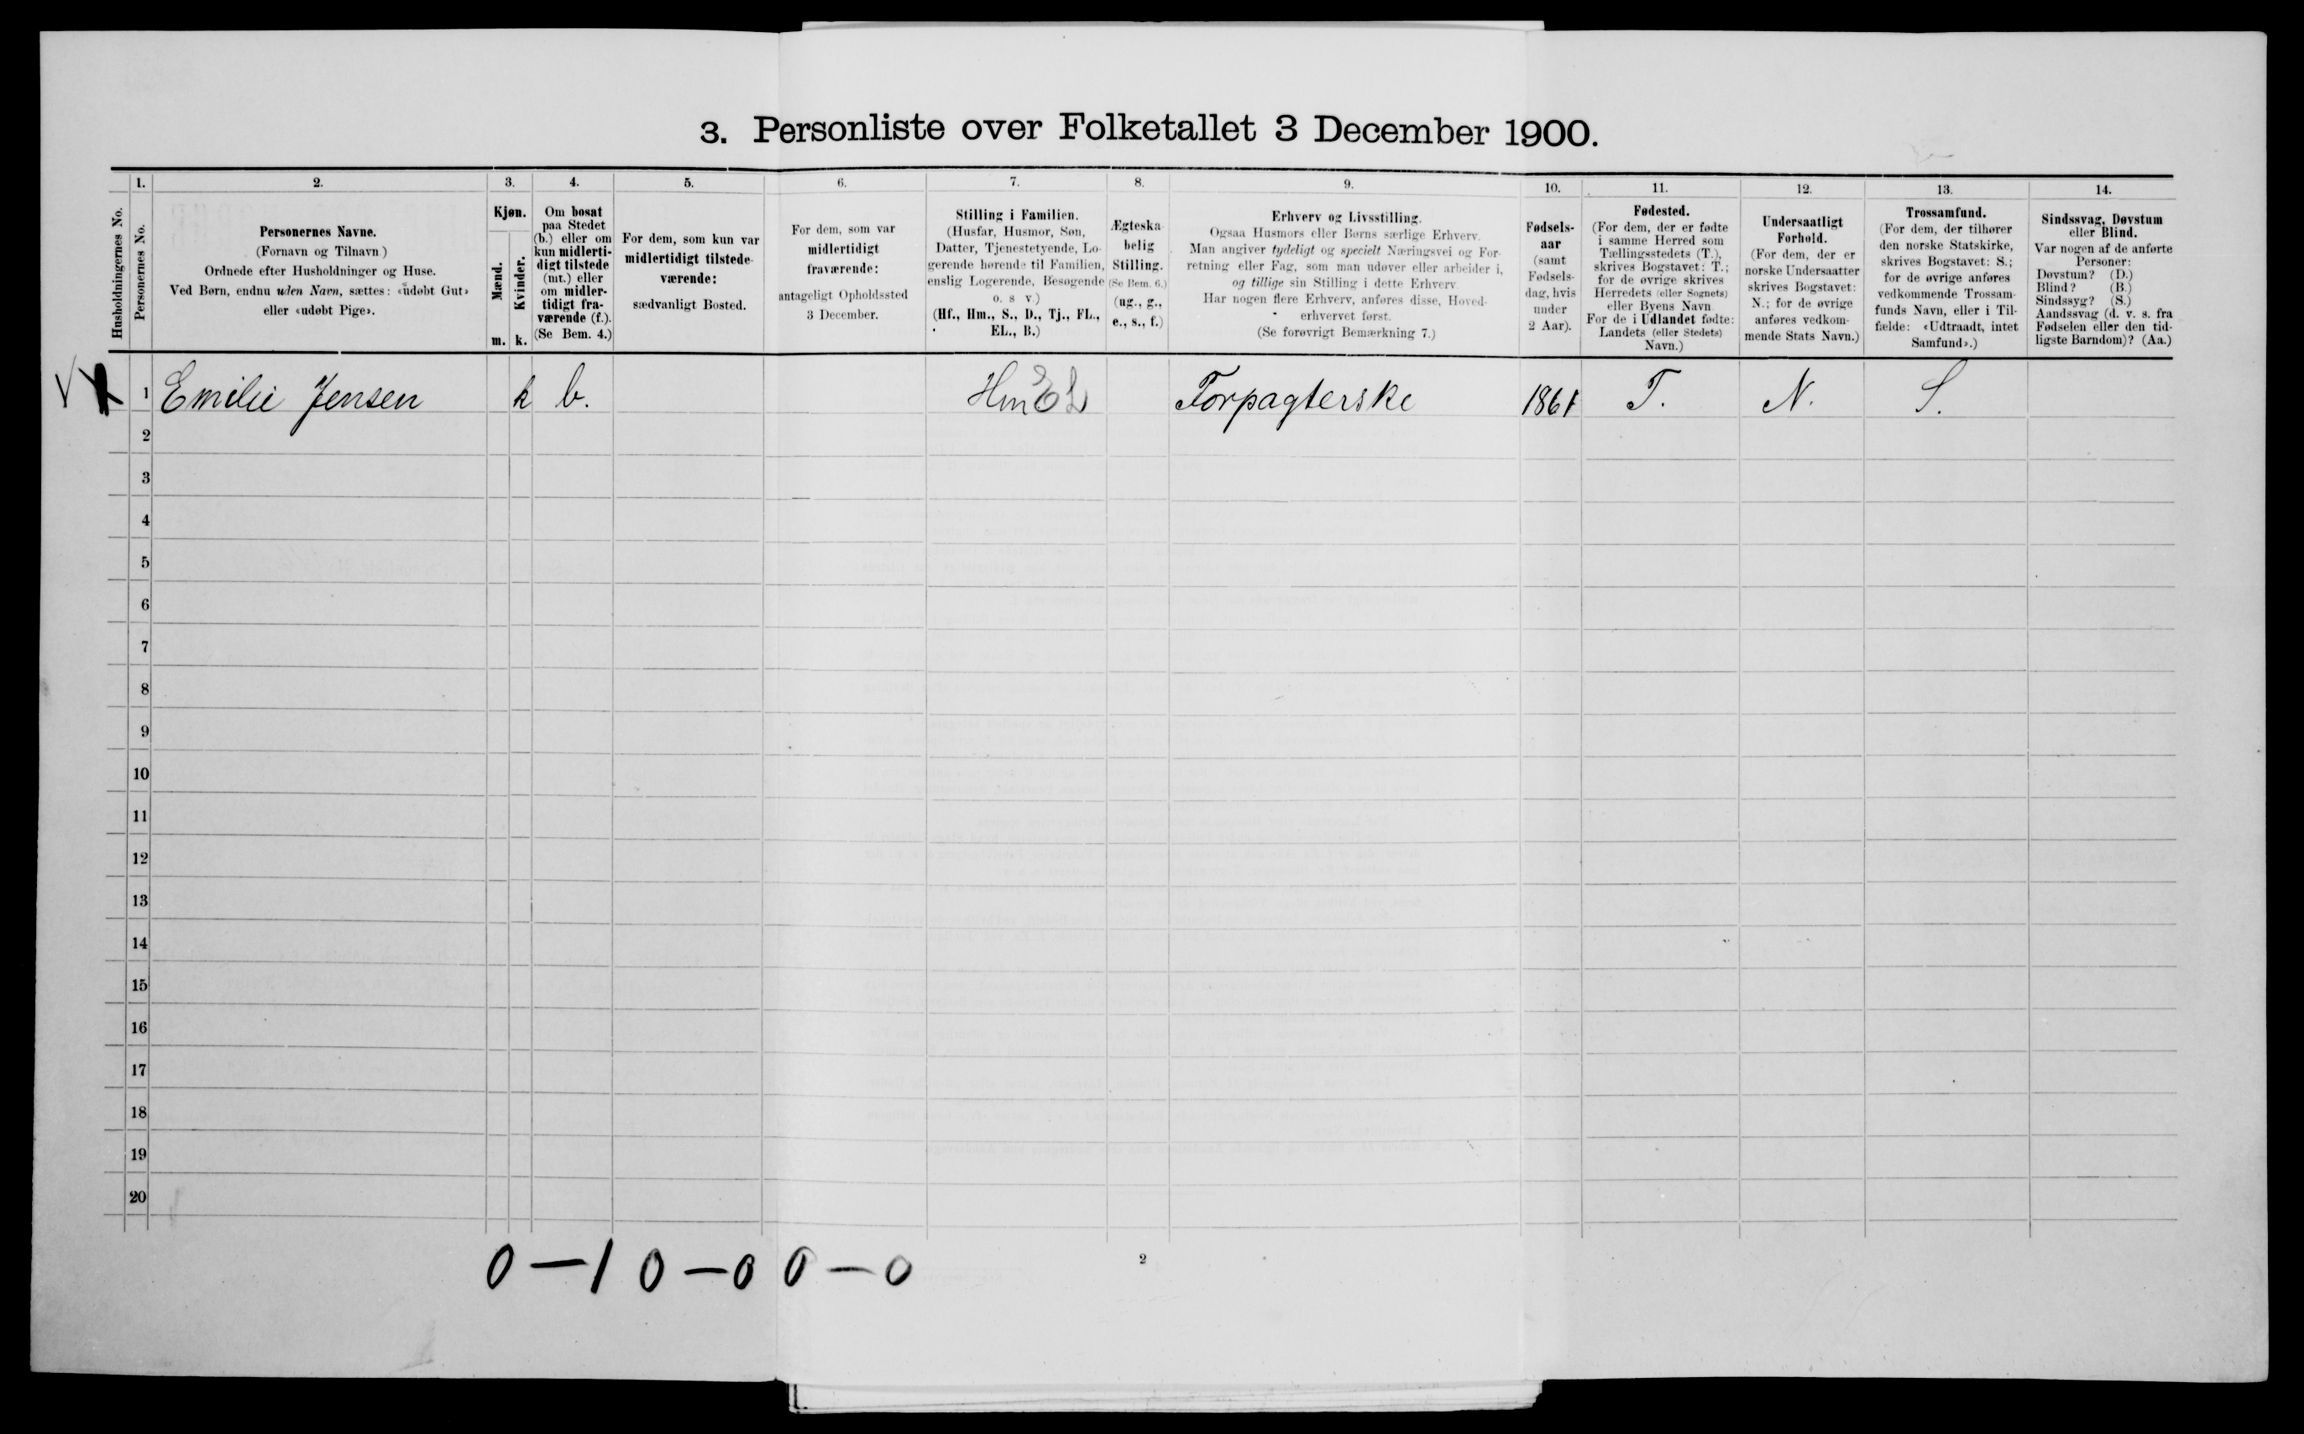 3. Personliste over Folketallet 3 December 1900.
1. 2. 3. 4. 5. 6. 7. 8. 9. 10. 11. 12. 13. 14.
Husholdningernes No.
Personernes No.
Personernes Navne.
(Fornavn og Tilnavn)
Ordnede efter Husholdninger og Huse.
Ved Børn, endnu uden Navn, sættes: «udøbt Gut»
eller «udøbt Pige».
Kjøn.
Mænd.
Kvinder.
m. k.
Om bosat
paa Stedet
(b.) eller om
kun midlerti-
digt tilstede
(mt.) eller
om midler-
tidigt fra-
værende (f.).
(Se Bem. 4.)
For dem, som kun var
midlertidigt tilstede-
værende:
sædvanligt Bosted.
For dem, som var
midlertidigt
fraværende:
antageligt Opholdssted
3 December.
Stilling i Familien.
(Husfar, Husmor, Søn,
Datter, Tjenestetyende, Lo-
gerende hørende til Familien,
enslig Logerende, Besøgende
o. s v.)
(Hf., Hm., S., D., Tj., FL.,
EL., B.)
Ægteska-
belig
Stilling.
(Se Bem. 6.)
(ug., g.,
e., s., f.)
Erhverv og Livsstilling.
Ogsaa Husmors eller Børns særlige Erhverv.
Man angiver tydeligt og specielt Næringsvei og For-
retning eller Fag, som man udøver eller arbeider i,
og tillige sin Stilling i dette Erhverv.
Har nogen flere Erhverv, anføres disse, Hoved-
erhvervet først.
(Se forøvrigt Bemærkning 7.)
Fødsels-
aar
(samt
Fødsels-
dag, hvis
under
2 Aar).
Fødested.
(For dem, der er fødte
i samme Herred som
Tællingsstedets (T.),
skrives Bogstavet: T.;
for de øvrige skrives
Herredets (eller Sognets)
eller Byens Navn
For de i Udlandet fødte:
Landets (eller Stedets)
Navn.)
Undersaatligt
Forhold.
(For dem, der er
norske Undersaatter
skrives Bogstavet:
N.; for de øvrige
anføres vedkom-
mende Stats Navn.)
Trossamfund.
(For dem, der tilhører
den norske Statskirke,
skrives Bogstavet: S.;
for de øvrige anføres
vedkommende Trossam-
funds Navn, eller i Til-
fælde: «Udtraadt, intet
Samfund».)
Sindssvag, Døvstum
eller Blind.
Var nogen af de anførte
Personer:
Døvstum? (D.)
Blind? (B.)
Sindssyg? (S.)
Aandssvag (d. v. s. fra
Fødselen eller den tid-
ligste Barndom)? (Aa.)
1 Emilie Jensen k b. Hm EL Forpagterske 1861 T. N. S.
2
3
4
5
6
7
8
9
10
11
12
13
14
15
16
17
18
19
20
0-1 0-0 0-0
2